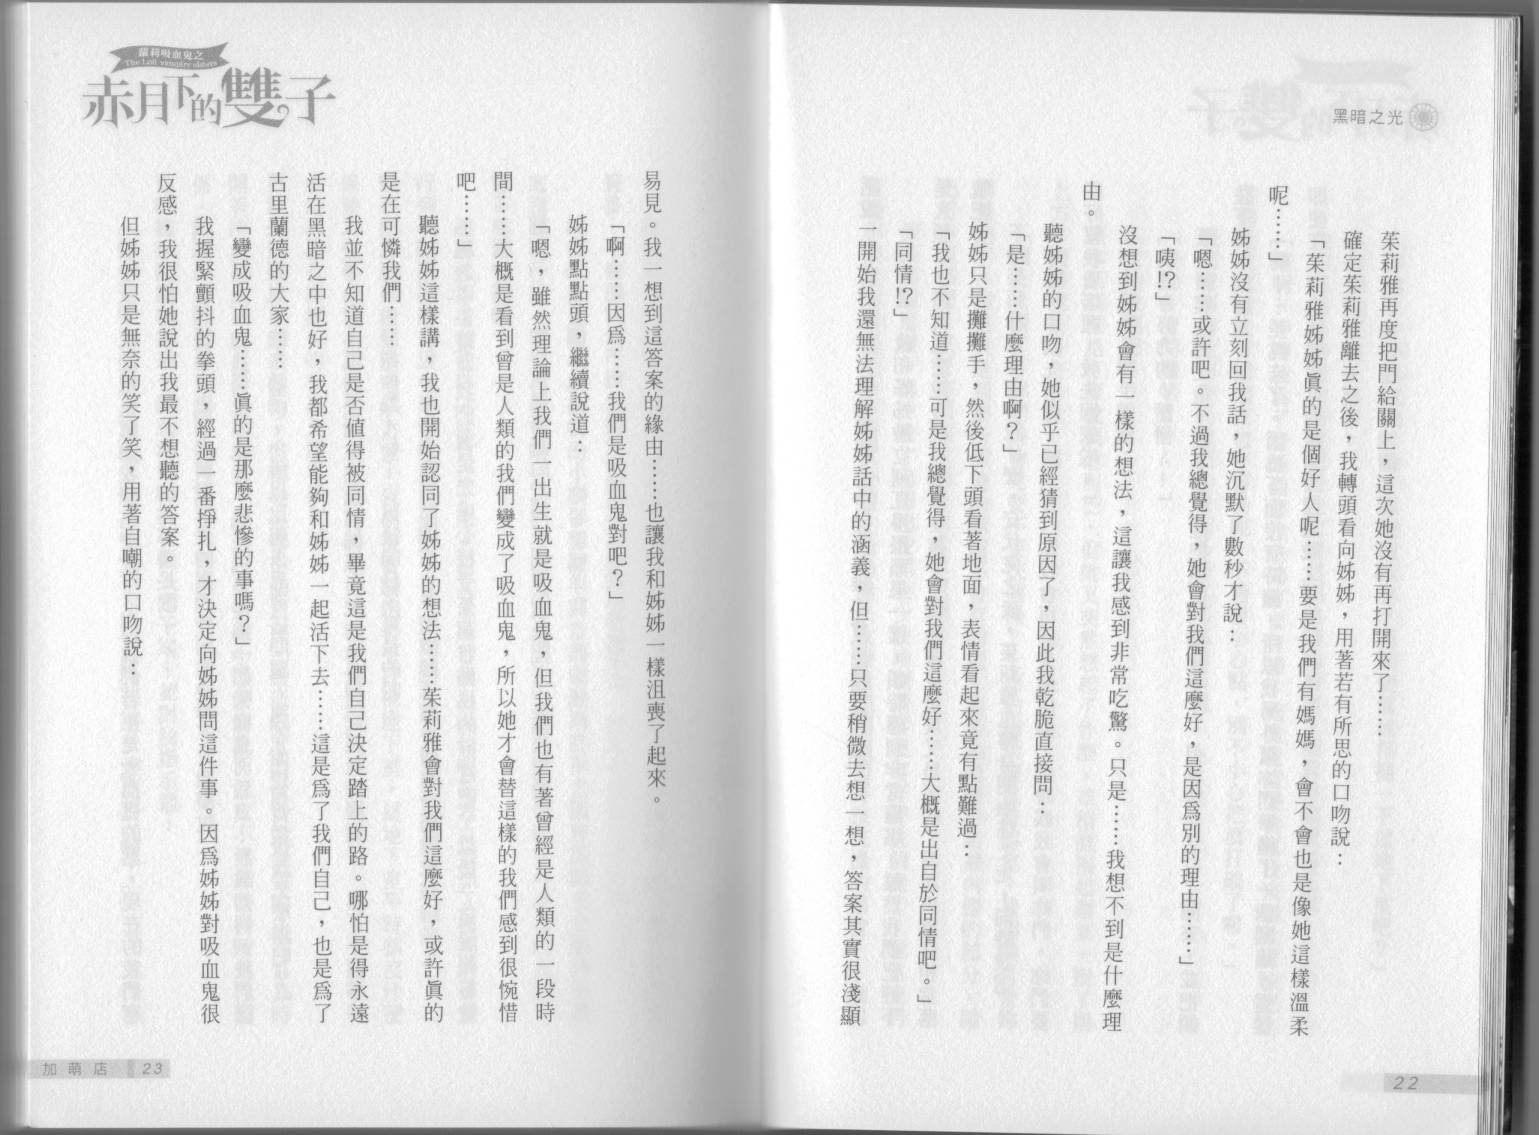 黑暗之光
茱莉雅再度把門給關上，這次她沒有再打開來了……
確定茱莉雅離去之後，我轉頭看向姊姊，用著若有所思的口吻說：
「茱莉雅姊姊眞的是個好人呢……要是我們有媽媽，會不會也是像她這樣溫柔
呢……」
姊姊沒有立刻回我話，她沉默了數秒才說：
「嗯……或許吧。不過我總覺得，她會對我們這麼好，是因爲別的理由……」
「咦!?」
沒想到姊姊會有一樣的想法，這讓我感到非常吃驚。只是……我想不到是什麼理
由。
聽姊姊的口吻，她似乎已經猜到原因了，因此我乾脆直接問：
「是……什麼理由啊？」
姊姊只是攤攤手，然後低下頭看著地面，表情看起來竟有點難過：
「我也不知道……可是我總覺得，她會對我們這麼好……大概是出自於同情吧。」
「同情!?」
一開始我還無法理解姊姊話中的涵義，但……只要稍微去想一想，答案其實很淺顯
22
蘿莉吸血鬼之
The Loli vampire sisters
赤月下的雙子
易見。我一想到這答案的緣由……也讓我和姊姊一樣沮喪了起來。
「啊……因爲……我們是吸血鬼對吧？」
姊姊點點頭，繼續說道：
「嗯，雖然理論上我們一出生就是吸血鬼，但我們也有著曾經是人類的一段時
間……大概是看到曾是人類的我們變成了吸血鬼，所以她才會替這樣的我們感到很惋惜
吧……」
聽姊姊這樣講，我也開始認同了姊姊的想法……茱莉雅會對我們這麼好，或許眞的
是在可憐我們……
我並不知道自己是否值得被同情，畢竟這是我們自己決定踏上的路。哪怕是得永遠
活在黑暗之中也好，我都希望能夠和姊姊一起活下去……這是爲了我們自己，也是爲了
古里蘭德的大家……
「變成吸血鬼……眞的是那麼悲慘的事嗎？」
我握緊顫抖的拳頭，經過一番掙扎，才決定向姊姊問這件事。因爲姊姊對吸血鬼很
反感，我很怕她說出我最不想聽的答案。
但姊姊只是無奈的笑了笑，用著自嘲的口吻說：
加萌店 23